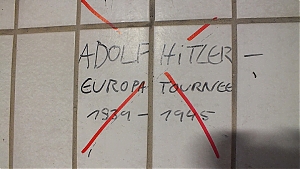 ADOLF HiTLER -
EUROPA TOURNEE
1939 - 1945